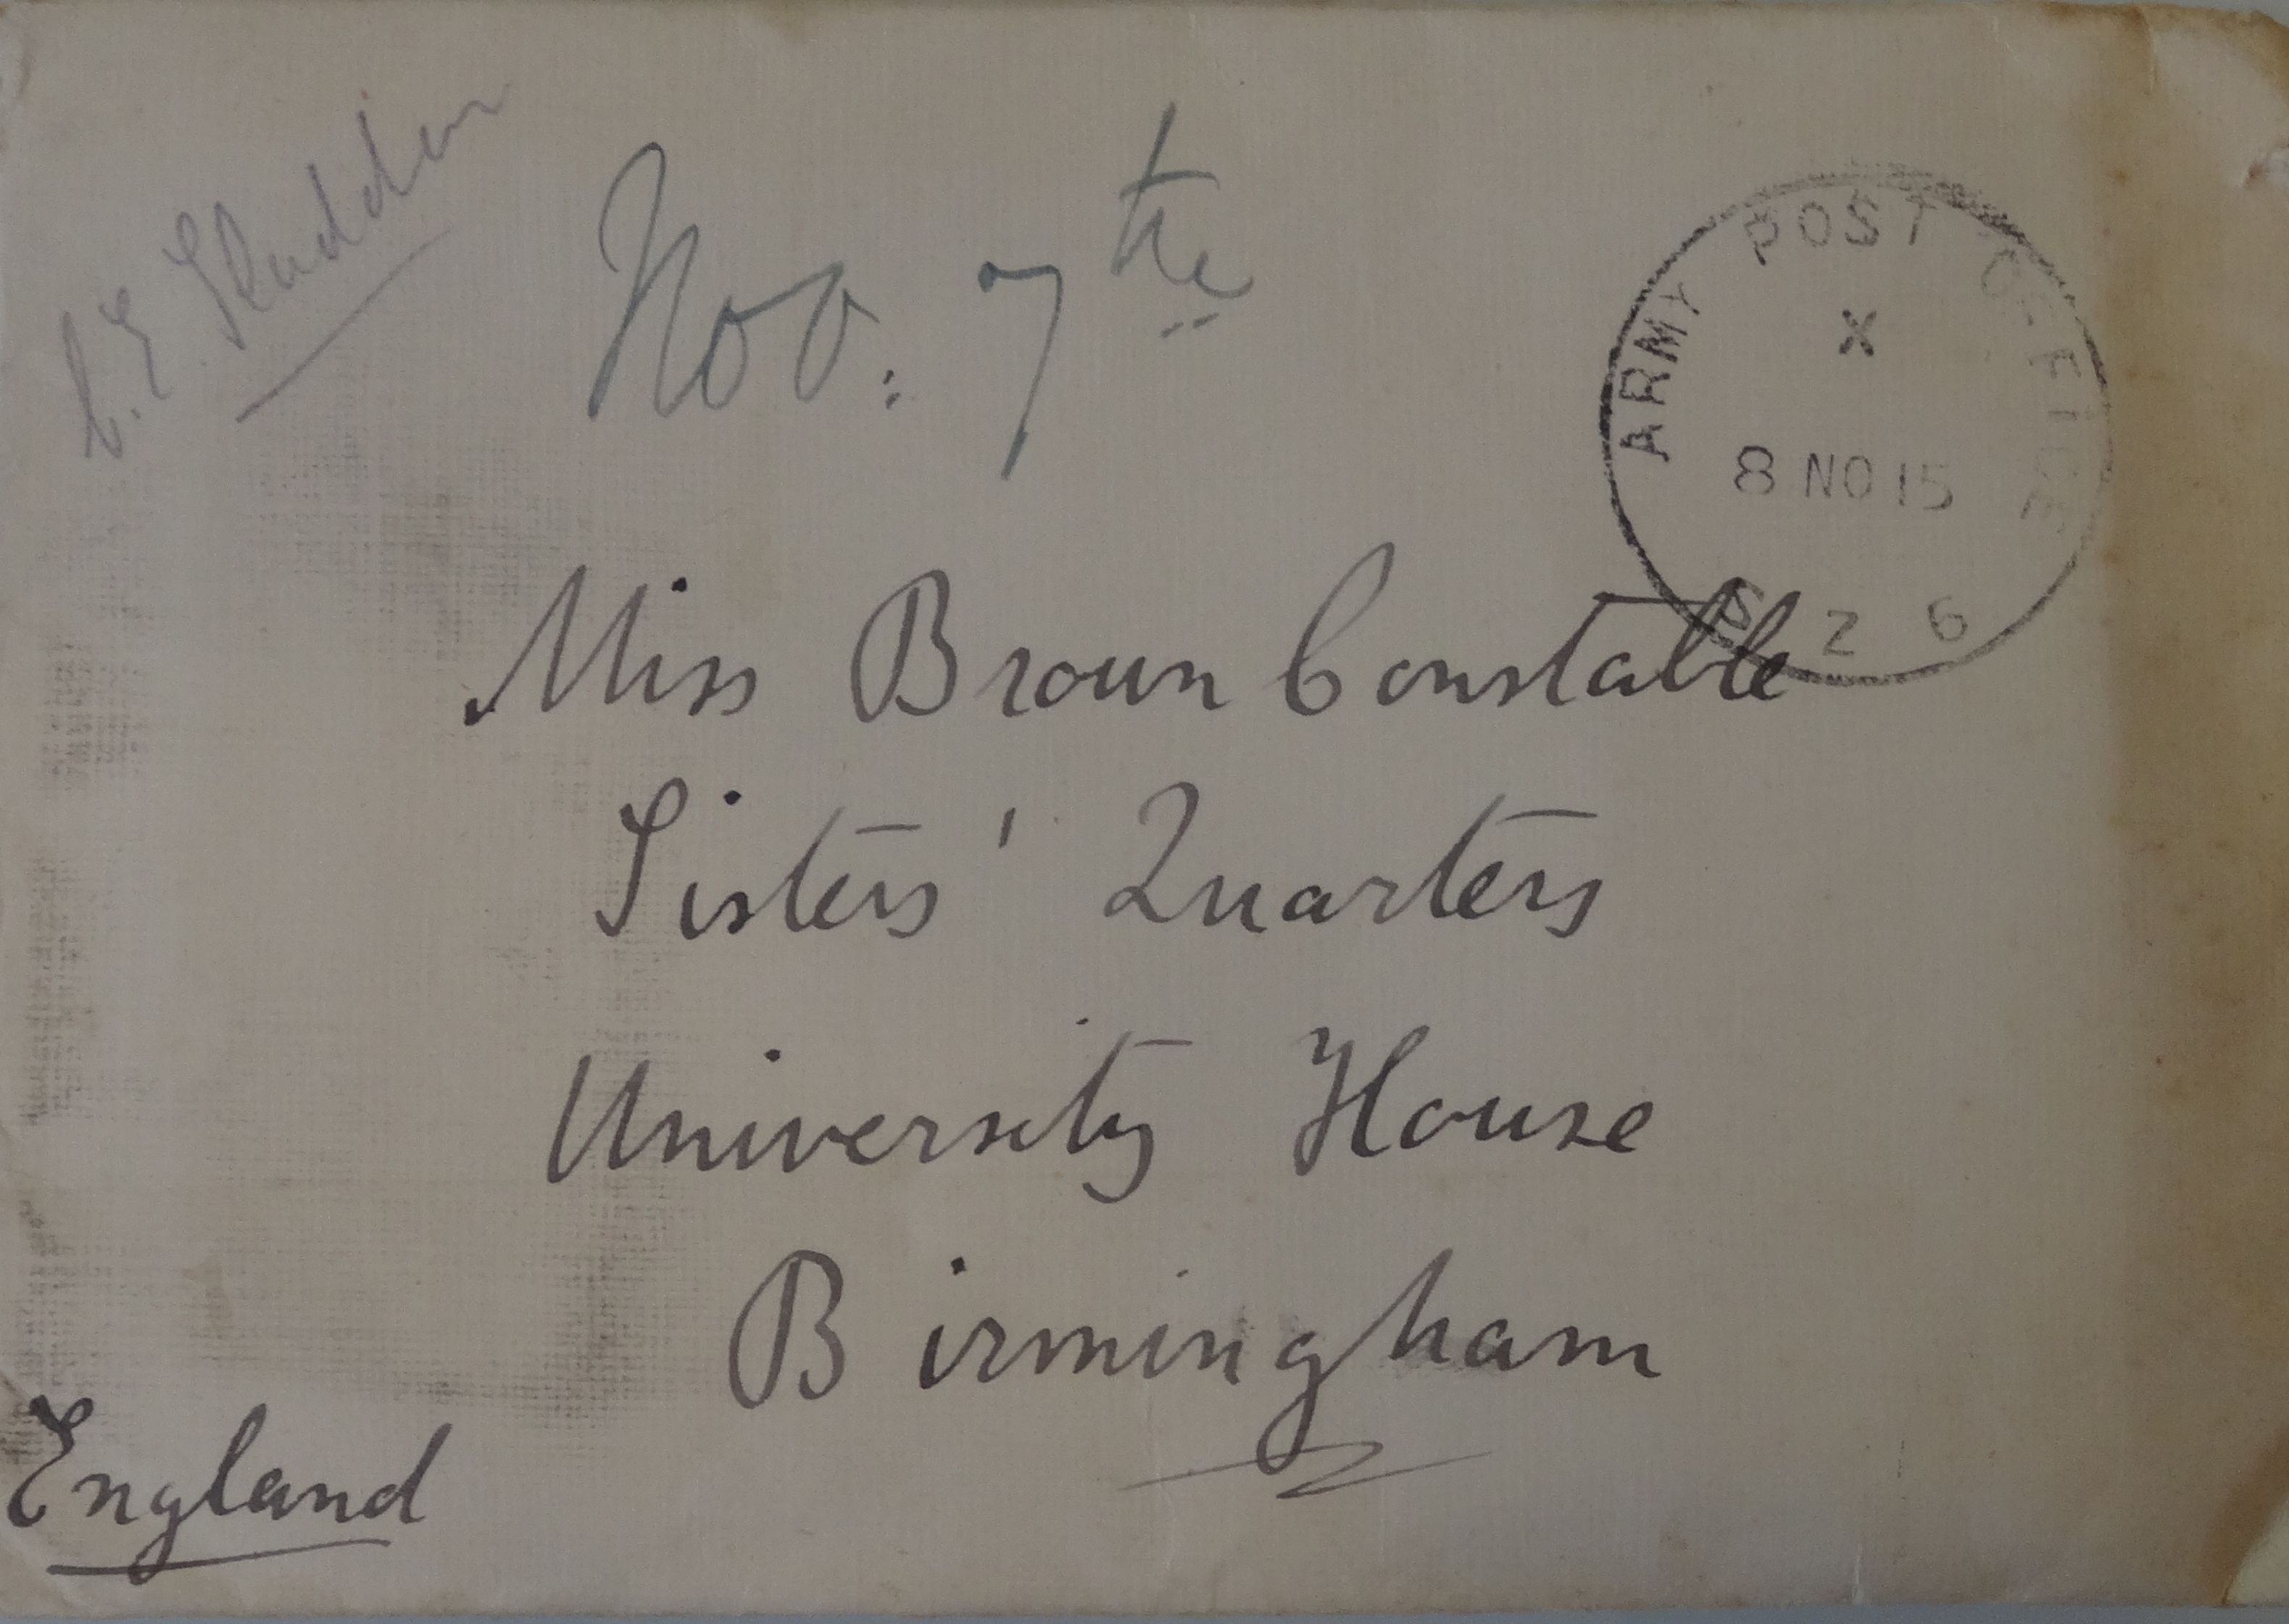 C.E. Sladden
Nov. 7th
ARMY POST OFFICE
X
8 NO 15
S Z 6
Miss Broun Constable
Sisters' Quarters
University House
Birmingham
England